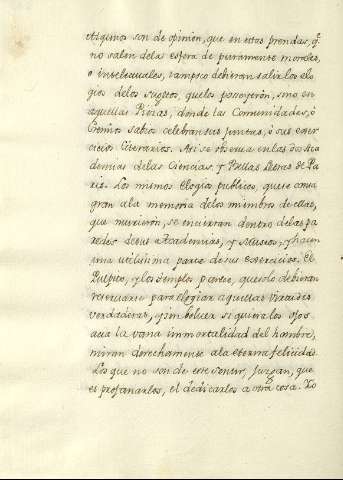 Algunos son de opinión, que en estas prendas, q.
no salen dela esfera de puramente morales,
o intelectuales, tampoco debieran salir los elo
gios delos sugetos, quelos poseyerón, sino en
aquellas Piezas, donde las Comunidades, ó
Gremios sabios celebran sus juntas, ó sus exer
cicios Literarios. Asi se observa enlas Aca
demias delas Ciencias, y Bellas Letras de Pa
ris. Los mismos Elogios publicos, que se consa
gran ala memoria delos miembros de ellas,
que murieron, se encierran dentro delas pa
redes desus Academias, y Museos, y hacen
una utilisima parte de sus exercicios. El
Pulpito, y los templos parece, que solo debieran
reservarse para Elogiar aquellas Virtudes
verdaderas, y sin bolver si quiera los ojos
acia la vana immortalidad del hombre,
miran derechamente ala eterna felicidad.
Los que no son de este sentir, Juzgan, que
es profanarlos, el dedicarlos a otra cosa. Yo